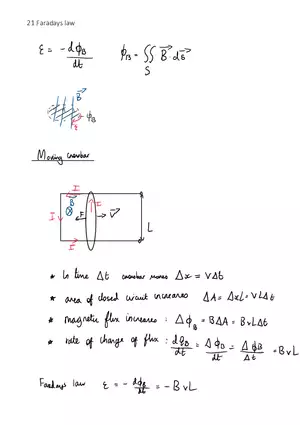 21 Faradays law
ε = - dϕ_B/dt    ϕ_B = ∬_S B⃗ · ds⃗
B⃗
ϕ_B
ε
Moving crowbar
I
B
⊗
I
I
F
v⃗
L
I
* In time Δt crowbar moves Δx = vΔt
* area of closed circuit increases ΔA = ΔxL = vLΔt
* magnetic flux increases : Δϕ_B = BΔA = BvLΔt
* rate of change of flux : dϕ_B/dt = Δϕ_B/dt = Δϕ_B/Δt = BvL
Faradays law ε = - dϕ_B/dt = -BvL